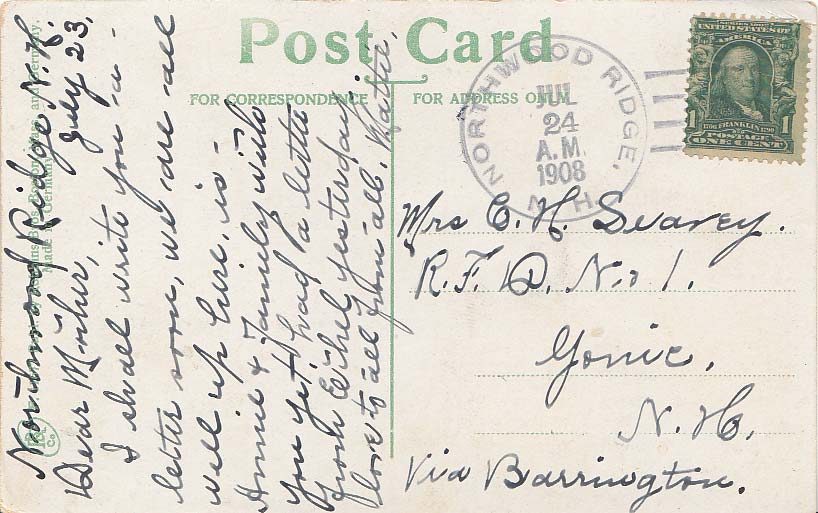 Post Card
FOR CORRESPONDENCE
FOR ADDRESS ONLY
NORTHWOOD RIDGE, N.H.
JUL
24
A.M.
1908
UNITED STATES OF
AMERICA
1 1
1706 FRANKLIN 1790
POSTAGE
ONE CENT
Northwood Ridge, N.H.
July 23,
Dear Mother,
I shall write you a-
letter soon, we are all
well up here, is-
Annie & Family with
you yet? had a letter
from Ethel yesterday,
love to all from all. Mattie,
Mrs C. H. Seavey.
R. F. D. No 1.
Gonic,
N. H.
Via Barrington.
Made in Germany
Co.